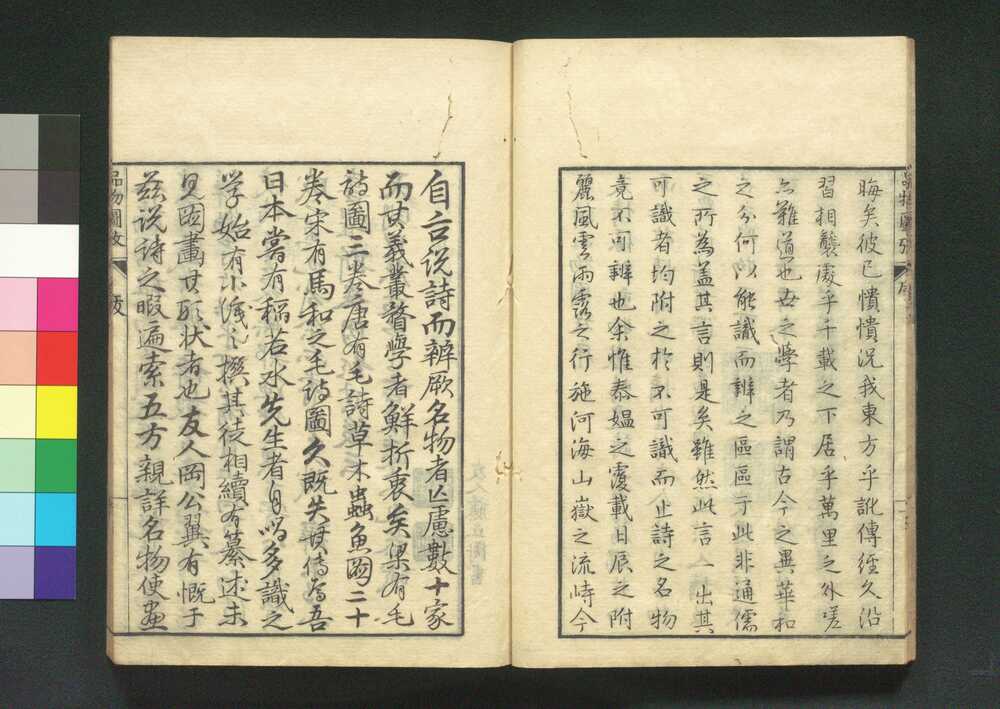 晦矣彼已憒憒況我東方乎訛傳經久沿
習相襲處乎千載之下居乎萬里之外嗟
亦難道也世之學者乃謂古今之異華和
之分何以能識而辨之區區于此非通儒
之所為蓋其言則是矣雖然此言一出其
可識者均附之於不可識而止詩之名物
竟不可辨也余惟泰媼之覆載日辰之附
麗風雲雨露之行施河海山嶽之流峙今
自古說詩而辨厥名物者亡慮數十家
而其義叢賾學者鮮折衷矣梁有毛
詩圖三卷唐有毛詩草木蟲魚圖二十
卷宋有馬和之毛詩圖久既失其傳焉吾
日本嘗有稻若水先生者自唱多識之
學始有小識之撰其徒相續有纂述未
見圖畫其形狀者也友人岡公翼有慨于
茲說詩之暇遍索五方親詳名物使畫
品物圖攷